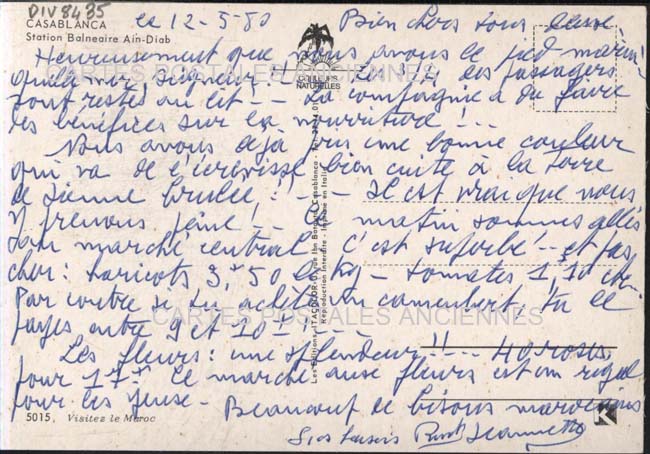 DIV8435
CASABLANCA
Station Balneaire Ain-Diab
Le 12-5-80 Bien chers tous deux
Heureusement que nous avons le pied marin
quelle mer, Seigneur! des passagers
sont restés au lit -- La compagnie a du faire
des bénéfices sur la nourriture!...
Nous avons déjà pris une bonne couleur
qui va de l'écrevisse bien cuite à la terre
de Sienne brulée!... Il est vrai que nous
y prenons peine! Ce matin sommes allés
au marché central c'est superbe!... et pas
cher: haricots 3,50 le kg - tomates 1,10
Par contre si tu achètes un camembert, tu le
payes entre 9 et 10
Les fleurs: une splendeur!!... 40 roses
pour 17 le marché aux fleurs est un régal
pour les yeux - Beaucoup de bisous marocains
Jeannette
COULEURS NATURELLES
Les Editions ITACOLOR
Reproduction Interdite - Imprimé en Italie
5015, Visitez le Maroc
K
CARTES POSTALES ANCIENNES
CARTES POSTALES ANCIENNES